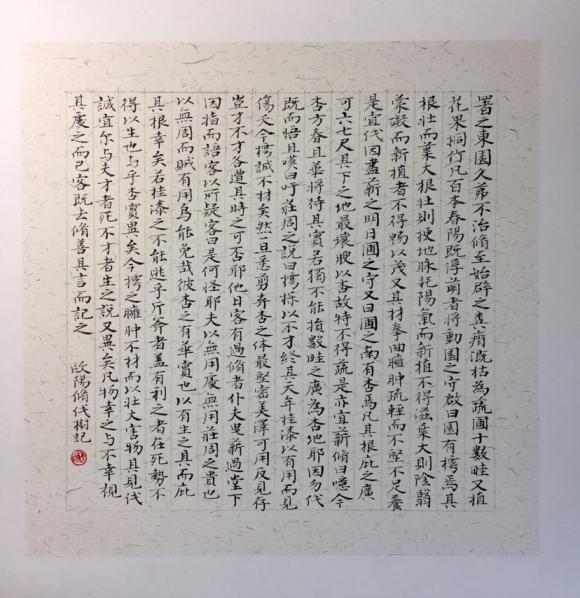 署之東園久茀不治脩至始辟之糞瘠溉枯為疏圃十數畦又植
花果桐竹凡百本春陽既浮萌者將動園之守啟曰園有樗焉其
根壯而葉大根壯則梗地脉耗陽氣而新植不得滋葉大則陰翳
蒙礙而新植者不得暢以茂又其材拳曲臃腫疏輕而不堅不足養
是宜伐因盡薪之明日圃之守又曰圃之南有杏焉凡其根庇之廣
可六七尺其下之地最壤腴以杏故特不得疏是亦宜薪脩曰噫今
杏方春且華將待其實若獨不能損數畦之廣為杏地耶因勿伐
既而悟且嘆曰吁莊周之說曰樗櫟以不才終其天年桂漆以有用而見
傷夭今樗誠不材矣然一旦悉剪弃杏之体最堅密美澤可用反見存
豈才不才各遭其時之可否耶他日客有過脩者仆夫曳薪過堂下
因指而語客以所疑客曰是何怪耶夫以無用處無用莊周之貴也
以無用而賊有用烏能免哉彼杏之有華實也以有生之具而庇
其根幸矣若桂漆之不能逃乎斤斧者盖有利之者在死勢不
得以生也与乎杏實異矣今樗之臃腫不材而以壯大害物其見伐
誠宜尔与夫才者死不才者生之說又異矣凡物幸之与不幸視
其處之而已客既去脩善其言而記之 歐陽脩伐樹記